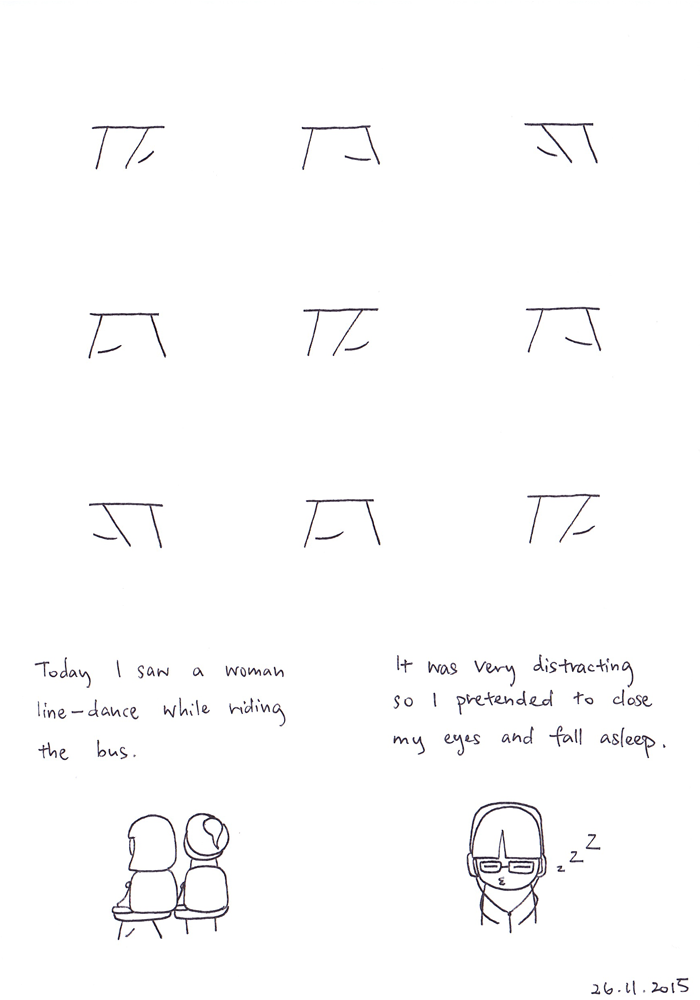 Today I saw a woman
line-dance while riding
the bus.
It was very distracting
so I pretended to close
my eyes and fall asleep.
z z Z
26.11.2015